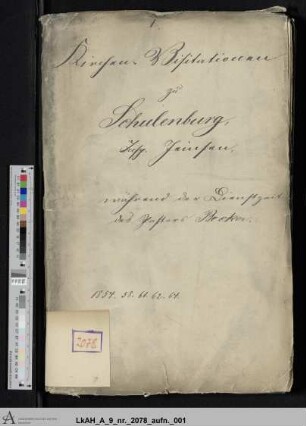 1.
Kirchen-Visitationen
zu
Schulenburg,
Insp. Jeinsen,
während der Dienstzeit
des Pastors
1854. 58. 61. 62. 64.
2078
LkAH_A_9_nr._2078_aufn._001